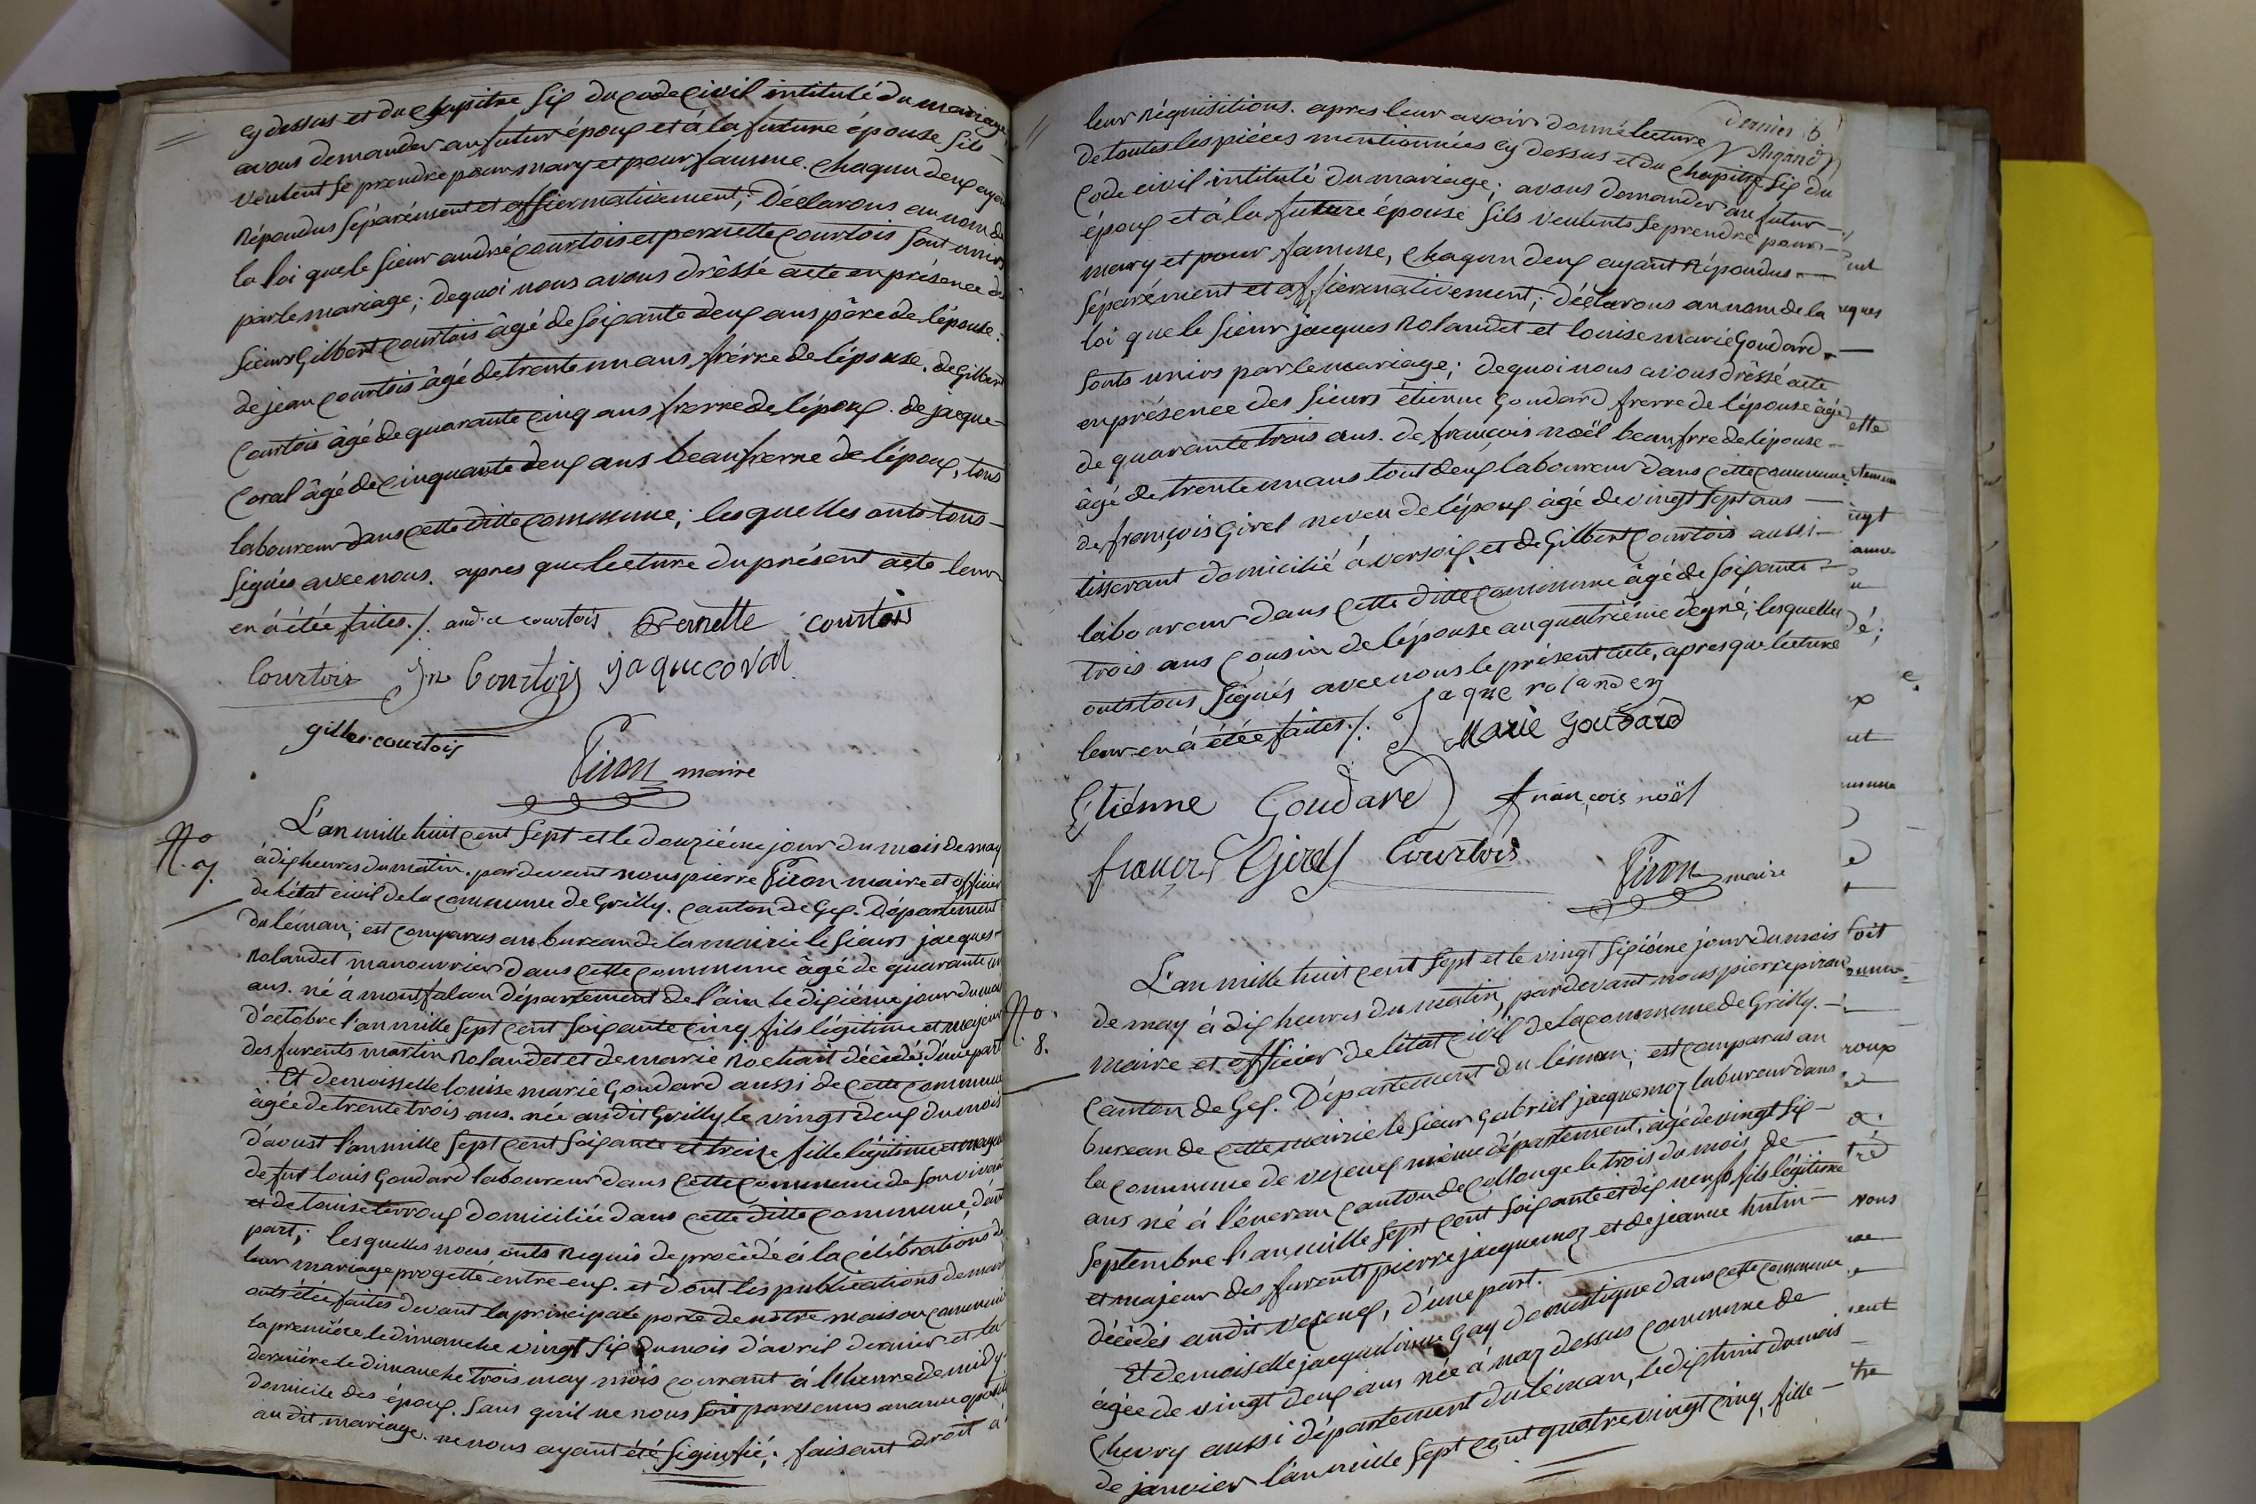 cy dessus et du chapitre six du code civil intitulé du mariage
avons demander au futur époux et à la future épouse sils
veulent se prendre pour mary et pour famme. chaqun deux ayant
Répondus séparément et affiermativement; Déclarons au nom de
la loi que le sieur andré courtois et pernette courtois sont unirs
par le mariage; de quoi nous avons drêssé acte en présence des
sieurs Gilbert courtois âgé de soixante deux ans pêre de l'épouse.
de jean courtois âgé de trente un ans frérre de l'épouse. de Gilbert
Courtois âgé de quarante cinq ans frerre de l'époux. de jacque
Coral âgé de cinquante deux ans beaufrerre de l'époux, tous
laboureur dans cette ditte commune; les quelles onts tous
signés avec nous. apres que lecture du présent acte leur
en à étée faites./. andre courtois Pernette courtois
Courtois Jn Courtois jaque coral
gilles courtois
Piron maire
N.o 7.
L'an mille huit cent sept et le douziéme jour du mois de may
à dix heures du matin. pardevant nous pierre Piron maire et officier
de l'état civil de la commune de Grilly. canton de Gex. Département
du léman; est comparus au bureau de la mairie le sieurs jacques
Rolandet manouvrier dans cette commune âgé de quarante un
ans. né a montfalcon département de l'ain le dixiéme jour du mois
d'octobre l'an mille sept cent soixante cinq fils légitime et majeur
des furents martin Rolandet et de marie Rochait décédés. d'une part
Et demoisselle louise marie Goudard aussi de cette commune
âgée de trente trois ans. née audit Grilly le vingt deux du mois
d'avust l'an mille sept cent soixante et treize fille légitime et majeur
de fut louis Goudard laboureur dans cette commune de son vivant
et de louise terroux domiciliée dans cette ditte commune, d'autre
part; lesquelles nous onts Requis de procédé à la célébrations de
leur mariage progetté entre eux. et d'ont les publications de mariage
onts étée faites devant la principale porte de nôtre maison commune
la premiére le dimanche vingt six du mois d'avril dernier et la
derniére le dimanche trois may mois courrant à l'heure de midy
domicile des époux. sans qu'il ne nous soit parvenus aucune opposition
au dit mariage. ne nous ayant été signifié; faisant droit à
dernier 6
Argand
leur Réquisitions. apres leur avoir donné lecture
de toutes les piéces mentionnées cy dessus et du chapitre six du
Code civil intitulé du mariage; avons demander au futur
époux et à la future épouse sils veulents se prendre pour
mary et pour famme, chaqun deux ayant Répondus
séparément et affiermativement; déclarons au nom de la
loi que le sieur jacques Rolandet et louise marie Goudard
sonts unirs par le mariage; de quoi nous avons drêssé acte
en présence des sieurs étienne Goudard frerre de l'épouse âgé
de quarante trois ans. de françois noël beaufrre de l'épouse
âgé de trente un ans tout deux laboureur dans cette commune.
de françois Girel neveu de l'époux âgé de vingt sept ans
tisserant domicilié à versoix, et de Gilbert Courtois aussi
laboureur dans cette ditte commune âgé de soixante
trois ans cousin de l'épouse au quatriéme dégré; lesquelles
onts tous signés avec nous le présent acte, apres que lecture
leur en à étée faites./. Jaque rolandey
Marie Goudard
Etiénne Goudard françois noël
françois Girel Courtois
Piron maire
No. 8.
L'an mille huit cent sept et le vingt sixiéme jour du mois
de may à dix heures du matin, pardevant nous pierre piron
maire et officier de l'état civil de la commune de Grilly.
canton de Gex. Département du léman; est comparus au
bureau de cette mairie le sieur Gabriel jacquemoz laboureur dans
la commune de vezeney même département. âgé de vingt six
ans né à léneran canton de Collonge le trois du mois de
septembre l'an mille sept cent soixante et dix neuf fils légitime
et majeur des furents pierre jacquemoz et de jeanne hutin
décédés audit vezeney, d'une part.
Et demoiselle jacqueline Gay domestique dans cette commune
âgée de vingt deux ans née à naz dessus commune de
Chevry aussi département du léman, le dix huit du mois
de janvier l'an mille sept cent quatre vingt cinq, fille